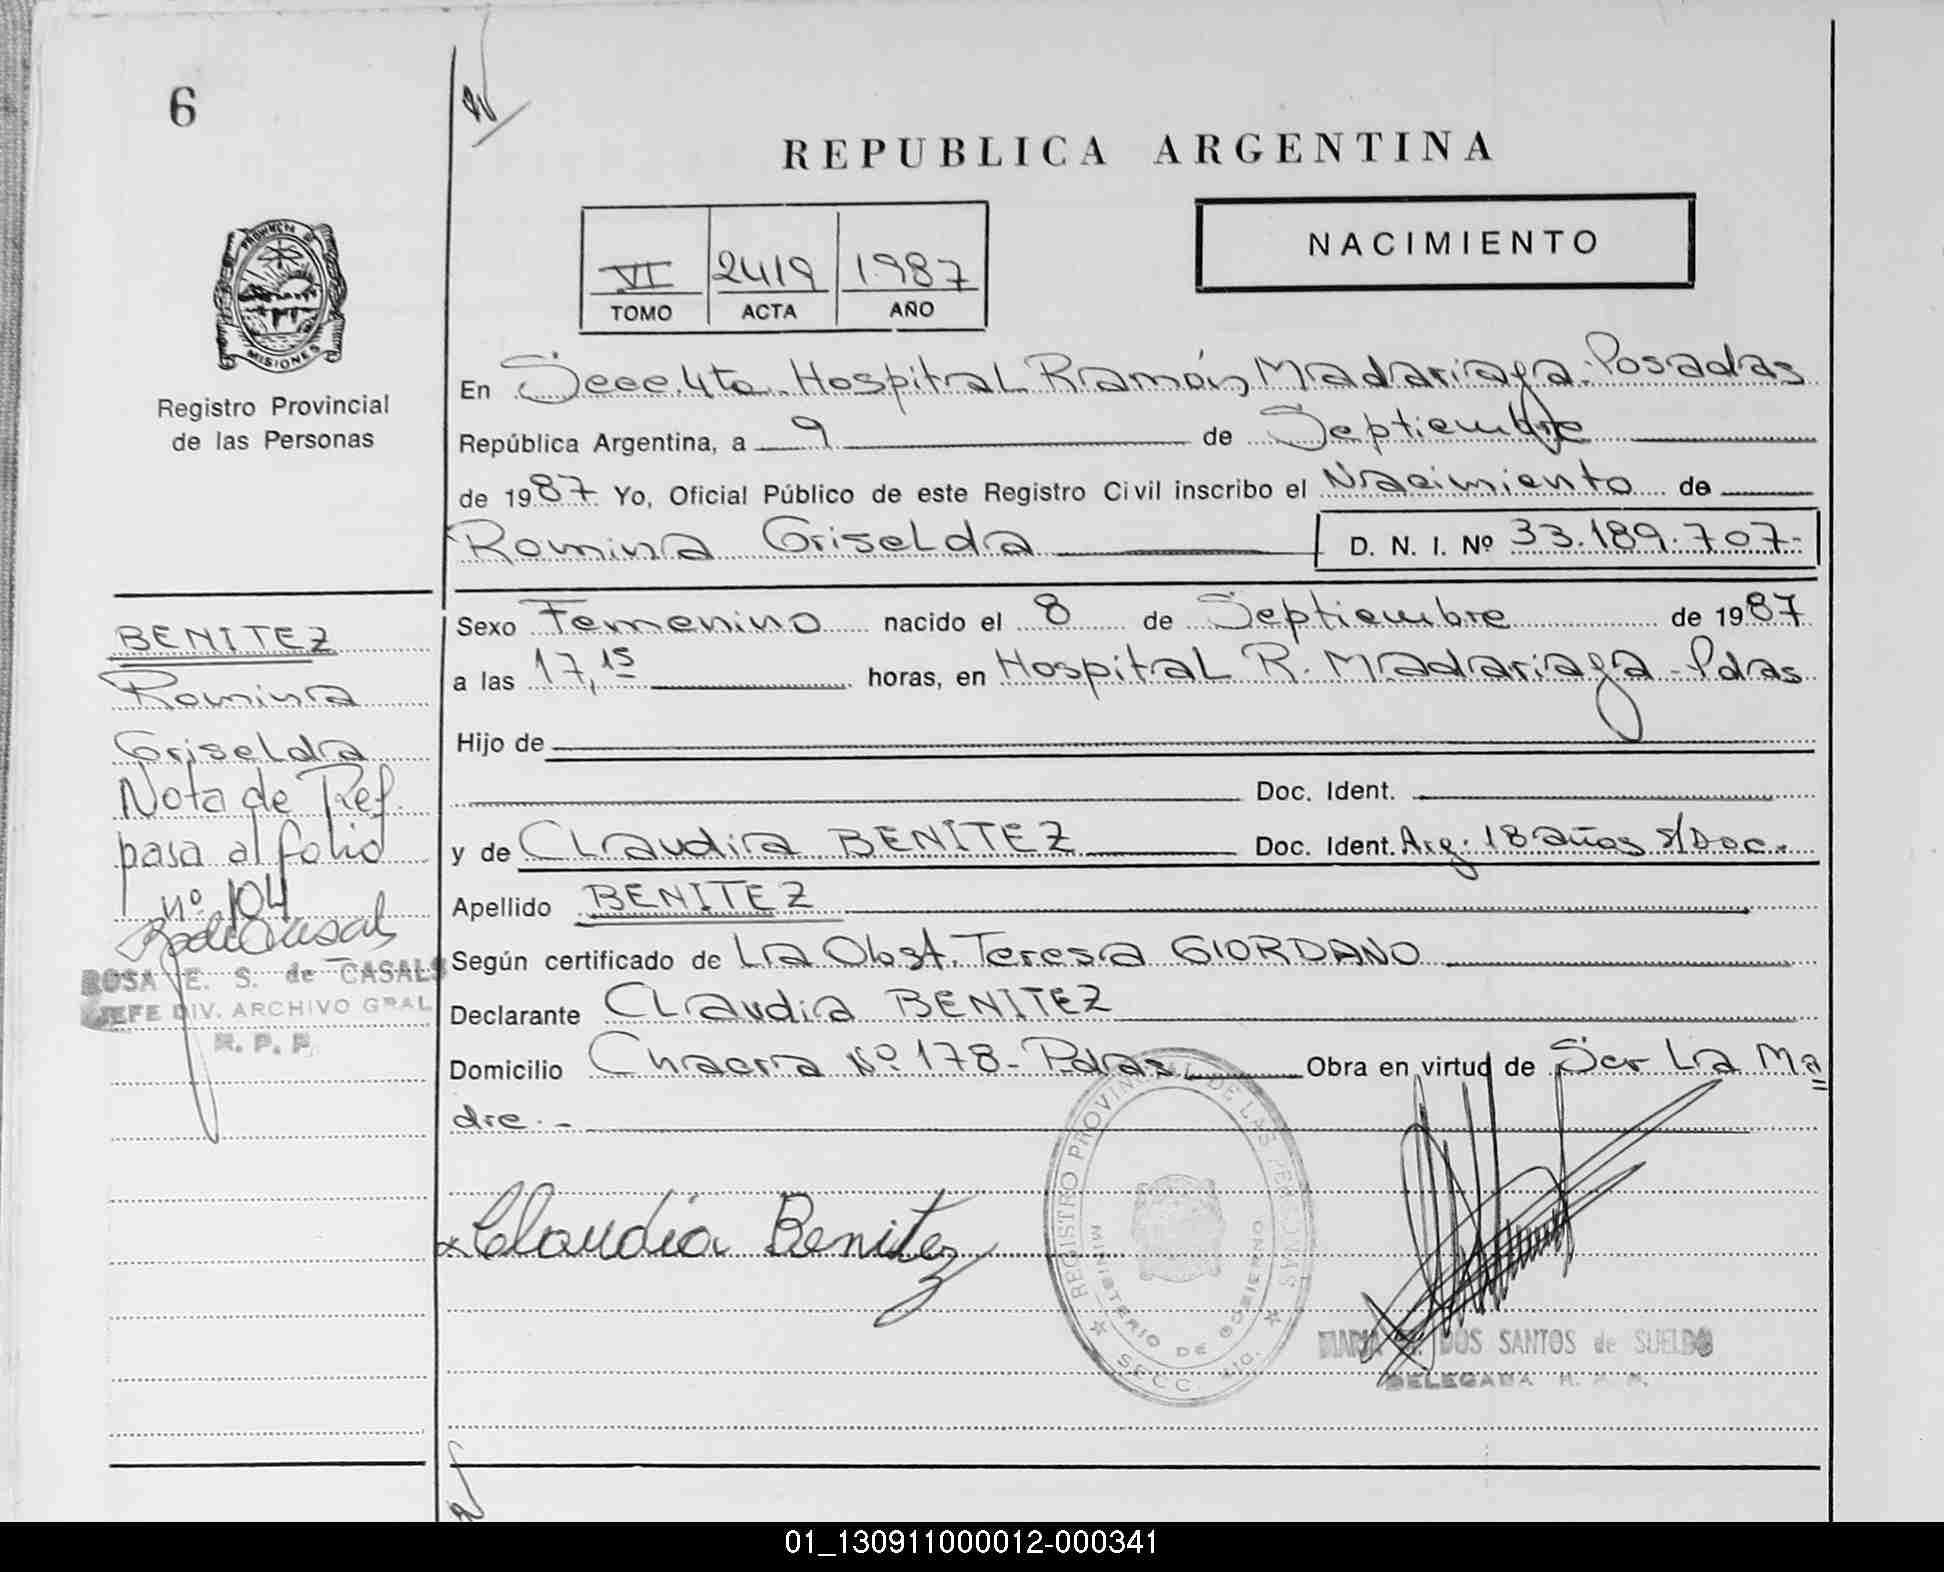 6
REPUBLICA ARGENTINA
NACIMIENTO
VI 2419 1987
TOMO ACTA AÑO
PROVINCIA DE
MISIONES
Registro Provincial
de las Personas
En Secc. 4ta. Hospital Ramón Madariaga. Posadas
República Argentina, a 9 de Septiembre
de 1987 Yo, Oficial Público de este Registro Civil inscribo el Nacimiento de
Romina Griselda D. N. I. Nº 33.189.707-
Sexo Femenino nacido el 8 de Septiembre de 1987
a las 17,15 horas, en Hospital R. Madariaga - Pdas
Hijo de
Doc. Ident.
y de Claudia BENITEZ Doc. Ident. Arg. 18 años s/Doc.
Apellido BENITEZ
Según certificado de La Obst. Teresa GIORDANO
Declarante Claudia BENITEZ
Domicilio Chacra Nº 178 - Pdas Obra en virtud de Ser La Ma
dre. -
BENITEZ
Romina
Griselda
Nota de Ref.
pasa al folio
nº 104
ROSA E. S. de CASALS
JEFE DIV. ARCHIVO GRAL
R. P. P.
Claudia Benitez
REGISTRO PROVINCIAL DE LAS PERSONAS
MINISTERIO DE GOBIERNO
SECC. 4ta.
DOS SANTOS de SUELDO
DELEGADA R. P. P.
01_130911000012-000341